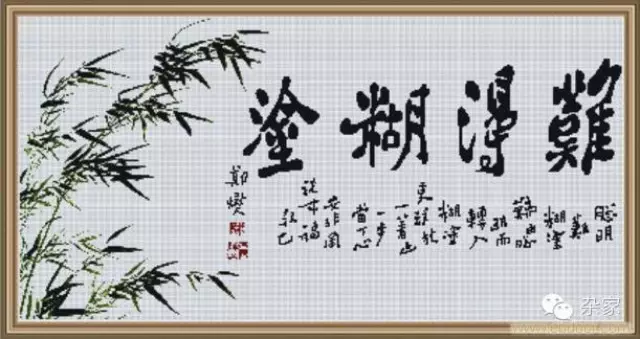 難得糊塗
聰明
難
糊塗
難由聰
明而
轉入
糊塗
更難放
一着退
一步
當下心
安非圖
後來福
報也
鄭燮
杂家